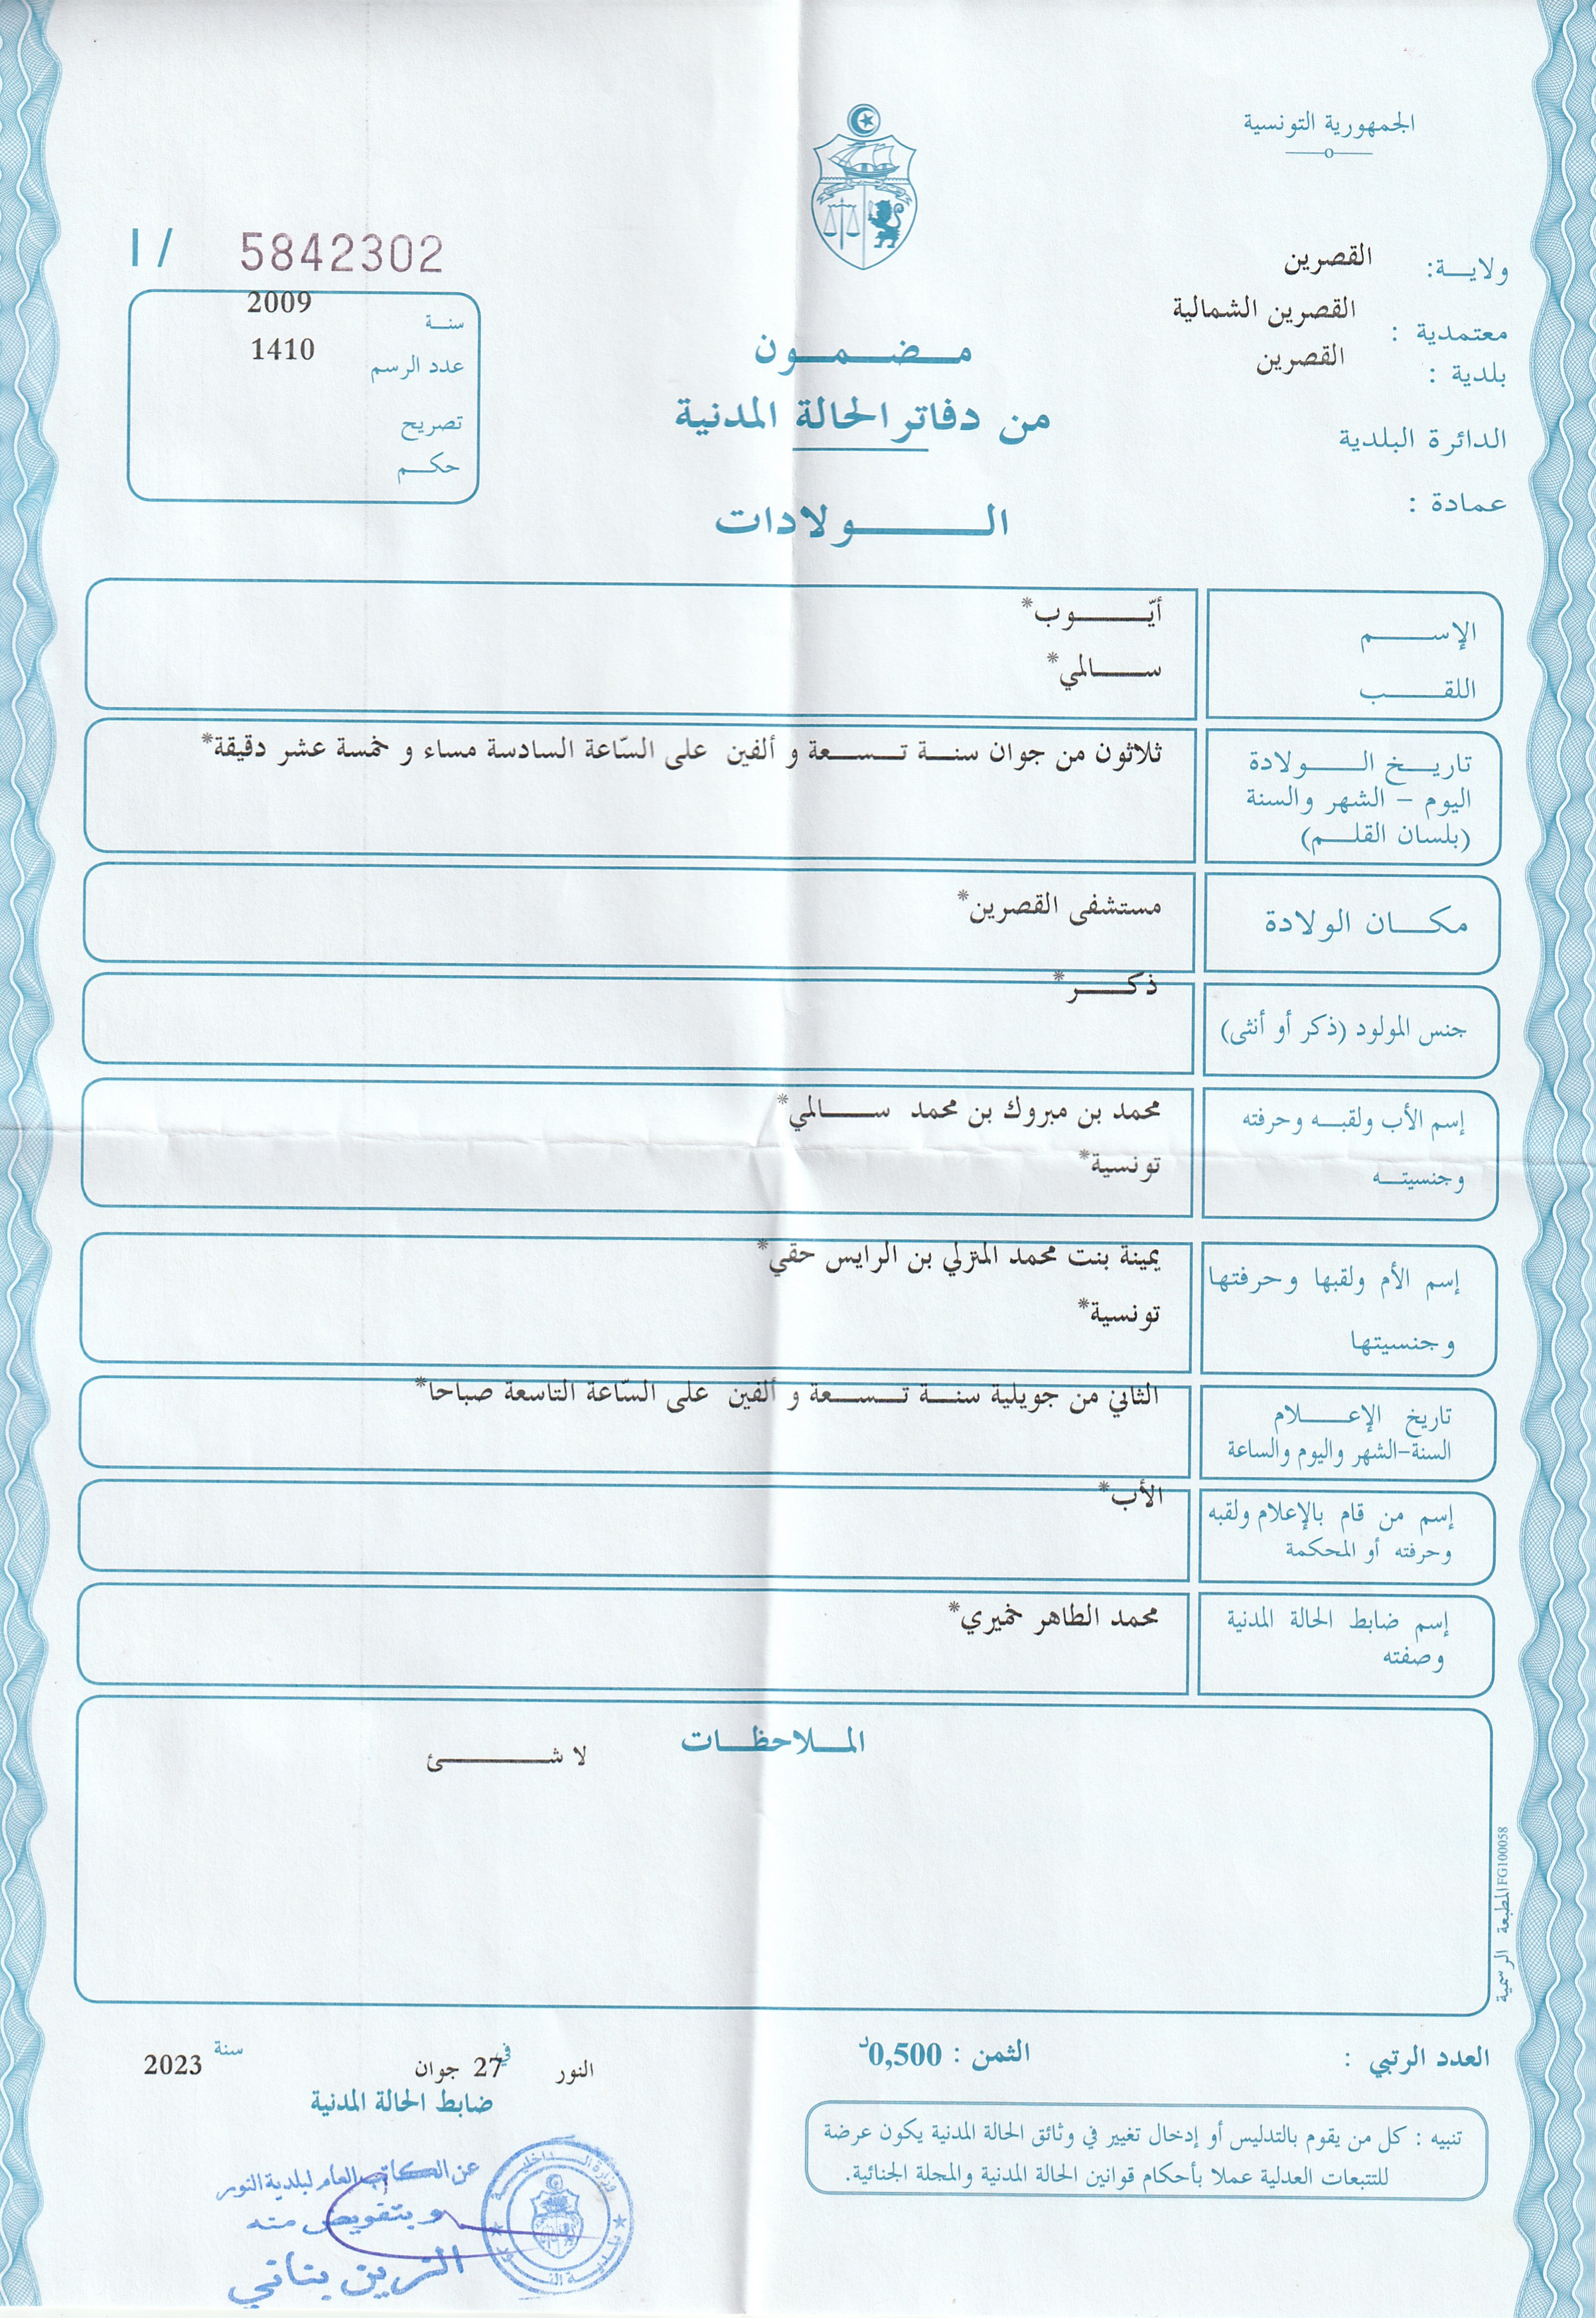 الجمهورية التونسية
ولايــة: القصرين
معتمدية : القصرين الشمالية
بلدية : القصرين
الدائرة البلدية
عمادة :
مـضـمـون
من دفاتر الحالة المدنية
الــولادات
I / 5842302
سنـة 2009
عدد الرسم 1410
تصريح
حكـم
الإســم أيّــوب*
اللقــب ســالمي*
تاريـخ الــولادة ثلاثون من جوان سنـة تـسـعة و ألفين على السّاعة السادسة مساء و خمسة عشر دقيقة*
اليوم – الشهر والسنة
(بلسان القلـم)
مكــان الولادة مستشفى القصرين*
جنس المولود (ذكر أو أنثى) ذكــر*
إسم الأب ولقبـه وحرفته محمد بن مبروك بن محمد ســالمي*
وجنسيتـه تونسية*
إسم الأم ولقبها وحرفتها يمينة بنت محمد المنزلي بن الرايس حقي*
وجنسيتها تونسية*
تاريخ الإعــلام الثاني من جويلية سنـة تـسـعة و ألفين على السّاعة التاسعة صباحا*
السنة-الشهر واليوم والساعة
إسم من قام بالإعلام ولقبه الأب*
وحرفته أو المحكمة
إسم ضابط الحالة المدنية محمد الطاهر خميري*
وصفته
المـلاحظـات
لا شــئ
المطبعة الرسمية FG100058
العدد الرتبي :
الثمن : 0,500د
النور في 27 جوان سنة 2023
ضابط الحالة المدنية
تنبيه : كل من يقوم بالتدليس أو إدخال تغيير في وثائق الحالة المدنية يكون عرضة
للتتبعات العدلية عملا بأحكام قوانين الحالة المدنية والمجلة الجنائية.
عن الكاتب العام لبلدية النور
وبتفويض منه
الزين بناني
وزارة الداخلية